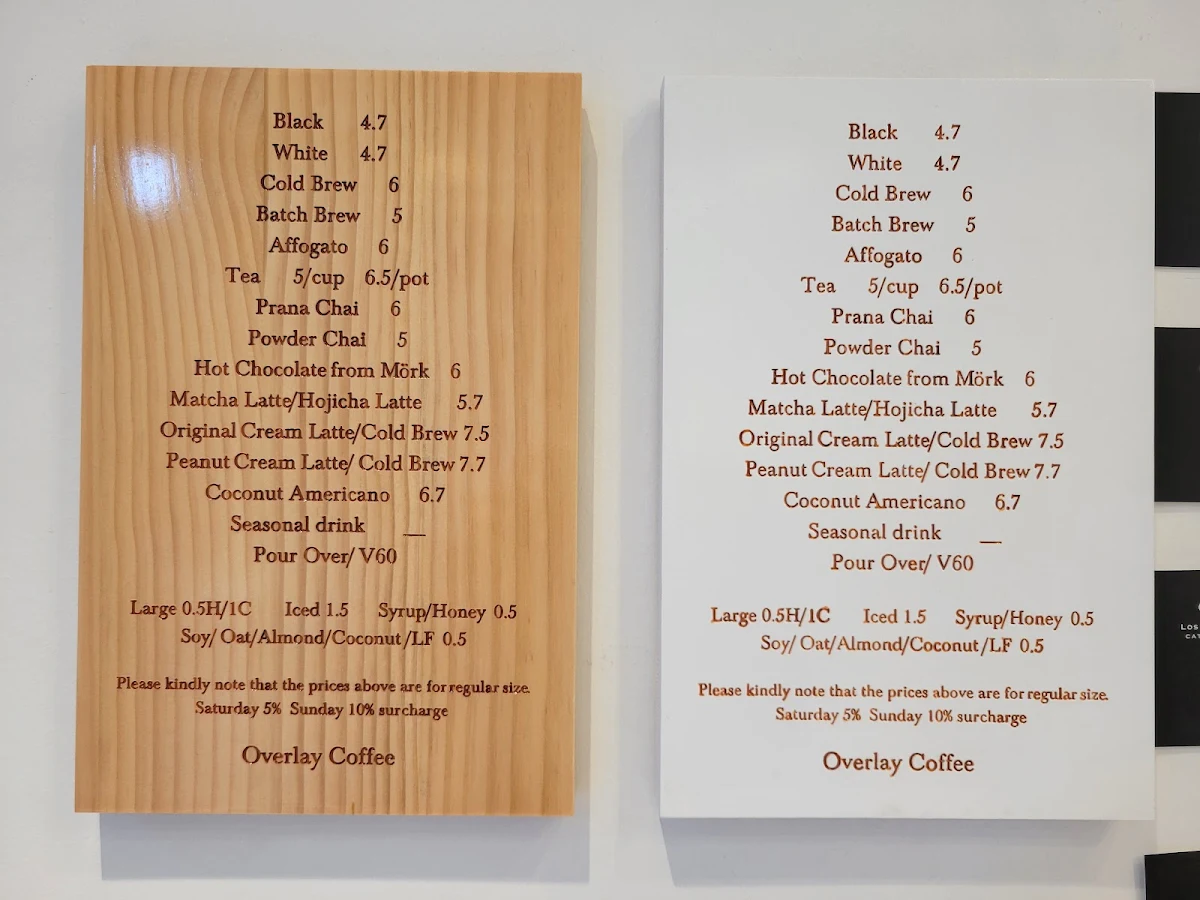 Black 4.7
White 4.7
Cold Brew 6
Batch Brew 5
Affogato 6
Tea 5/cup 6.5/pot
Prana Chai 6
Powder Chai 5
Hot Chocolate from Mörk 6
Matcha Latte/Hojicha Latte 5.7
Original Cream Latte/Cold Brew 7.5
Peanut Cream Latte/ Cold Brew 7.7
Coconut Americano 6.7
Seasonal drink __
Pour Over/ V60
Large 0.5H/1C Iced 1.5 Syrup/Honey 0.5
Soy/ Oat/Almond/Coconut /LF 0.5
Please kindly note that the prices above are for regular size.
Saturday 5% Sunday 10% surcharge
Overlay Coffee
Black 4.7
White 4.7
Cold Brew 6
Batch Brew 5
Affogato 6
Tea 5/cup 6.5/pot
Prana Chai 6
Powder Chai 5
Hot Chocolate from Mörk 6
Matcha Latte/Hojicha Latte 5.7
Original Cream Latte/Cold Brew 7.5
Peanut Cream Latte/ Cold Brew 7.7
Coconut Americano 6.7
Seasonal drink __
Pour Over/ V60
Large 0.5H/1C Iced 1.5 Syrup/Honey 0.5
Soy/ Oat/Almond/Coconut /LF 0.5
Please kindly note that the prices above are for regular size.
Saturday 5% Sunday 10% surcharge
Overlay Coffee
Los